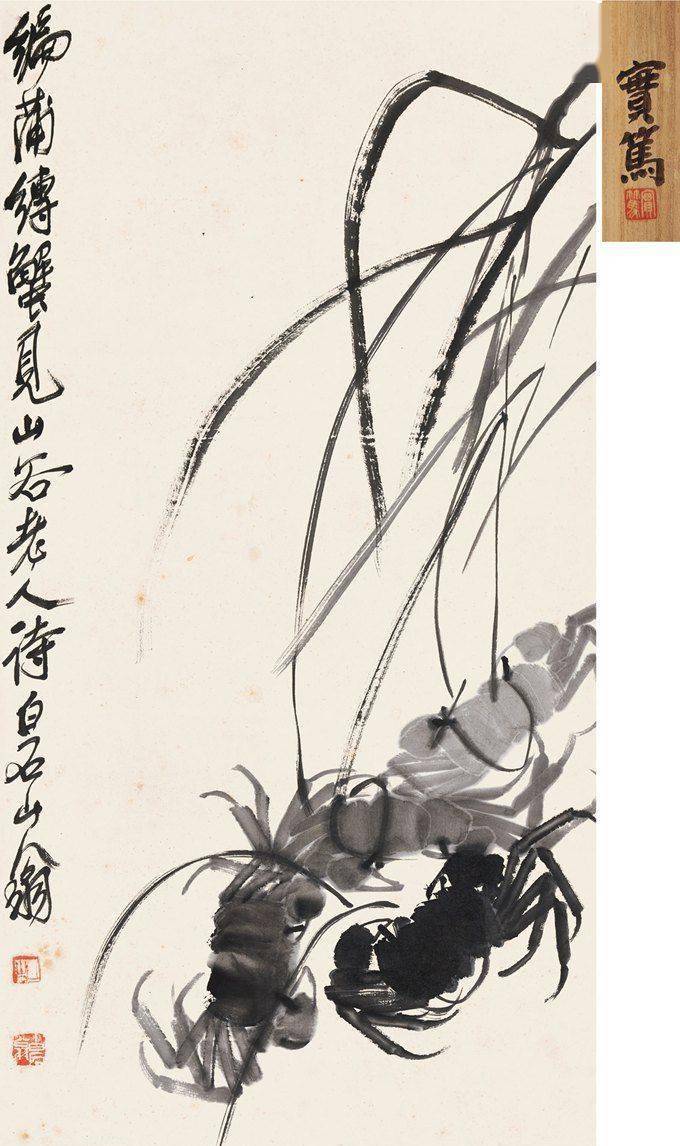 編蒲縛蟹見山谷老人詩白石山翁
實篤